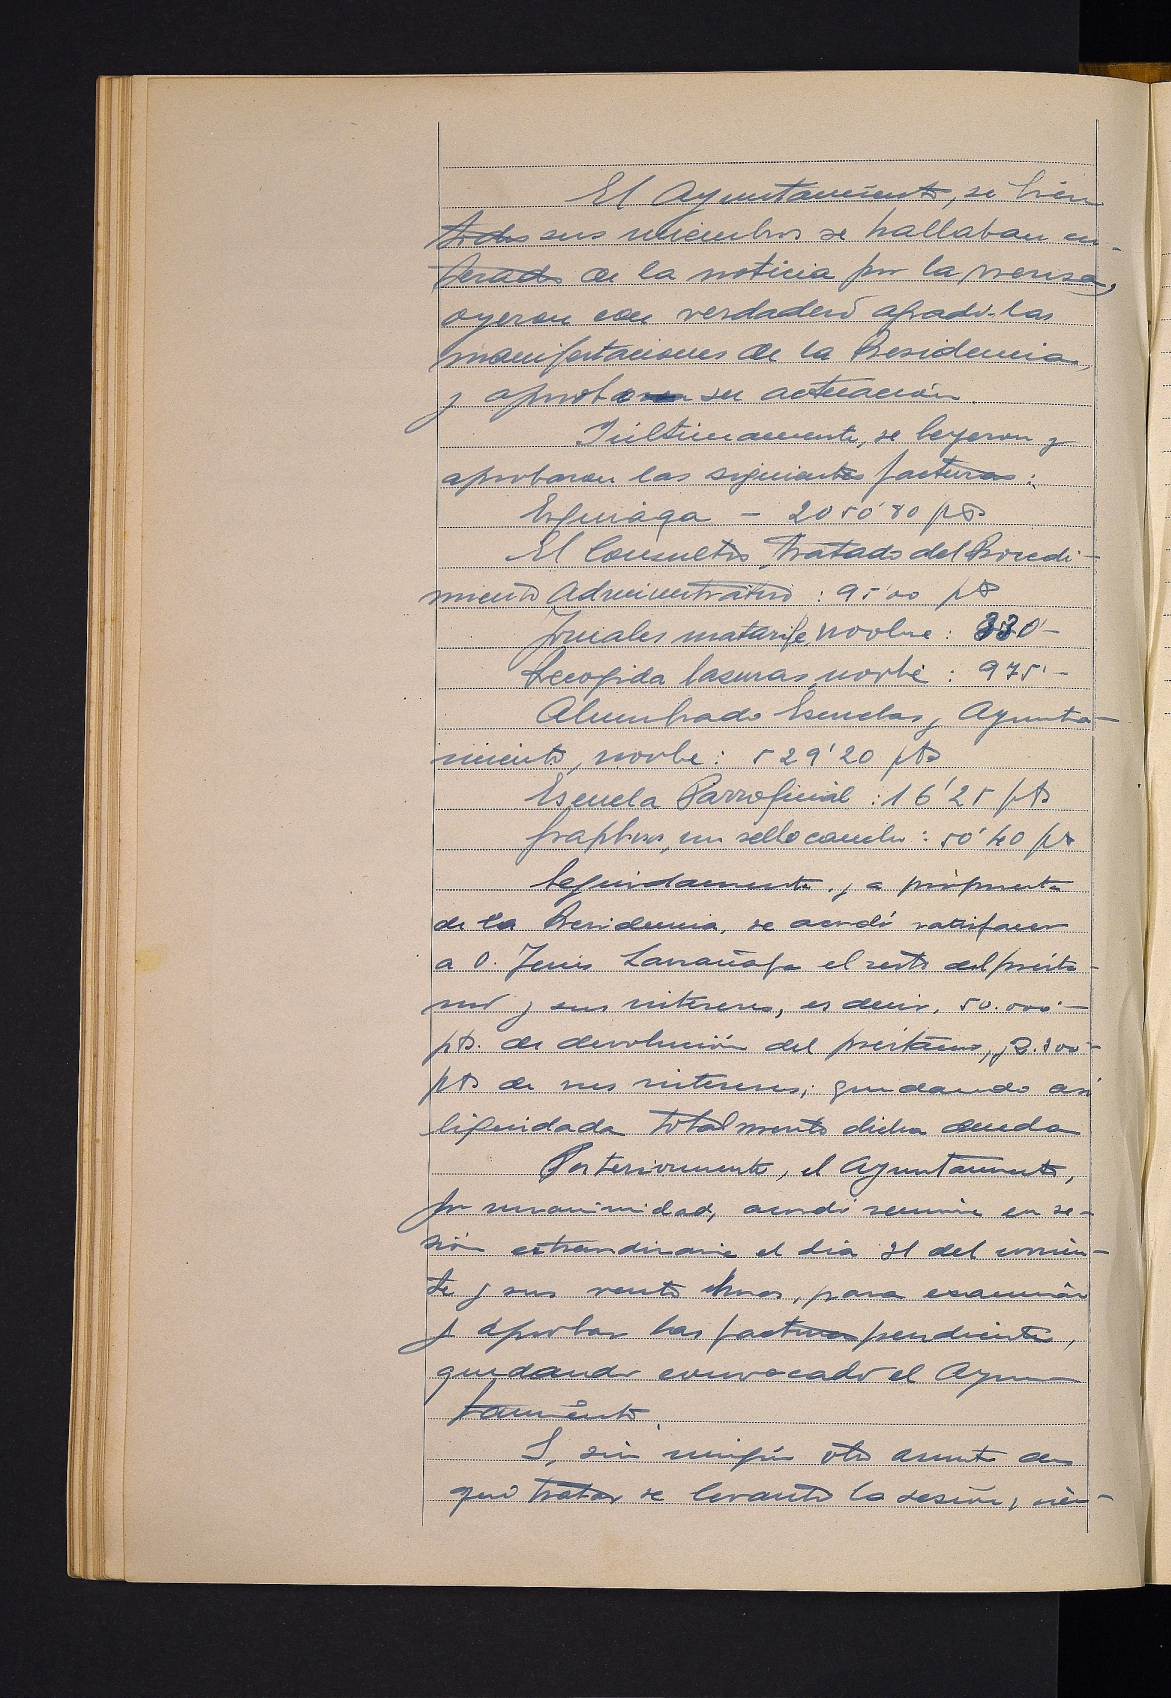 El Ayuntamiento, si bien
todos sus miembros se hallaban en-
terados de la noticia por la prensa,
oyeron con verdadero agrado las
manifestaciones de la Presidencia,
y aprobaron su actuación.
Ultimamente, se leyeron y
aprobaron las siguientes facturas:
Eguiaga - 2050'80 pts
El Consultor, Tratado del Procedi-
miento Administrativo : 95'00 pts
Jornales matarife, novbre : 330'-
Recogida basuras novbre : 975'-
Alumbrado Escuelas y Ayunta-
miento, novbre : 529'20 pts
Escuela Parroquial : 16'25 pts
un sello caucho : 50'40 pts
Seguidamente, y a propuesta
de la Presidencia, se acordó satisfacer
a D. Jesus Larrañaga el resto del présta-
mo y sus intereses, es decir, 50.000'-
pts. de devolución del préstamo, y
pts de sus intereses; quedando así
liquidada totalmente dicha deuda
Posteriormente, el Ayuntamiento,
por unanimidad, acordó reunirse en se-
sión extraordinaria el día 31 del corrien-
te y sus veinte horas, para examinar
y aprobar las facturas pendientes,
quedando convocado el Ayun-
tamiento.
Y, sin ningún otro asunto de
que tratar se levantó la sesión, sien-